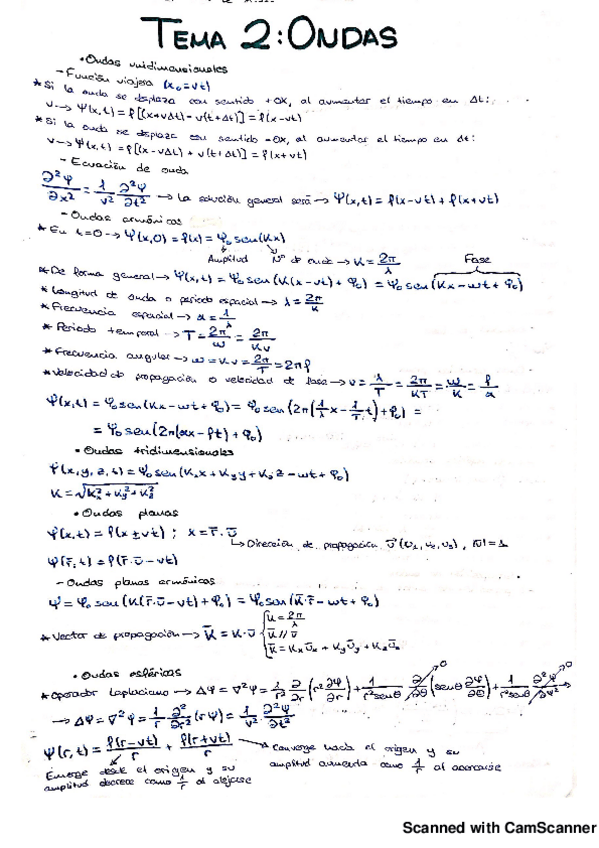 TEMA 2: ONDAS
• Ondas unidimensionales
- Función viajera (x₀=vt)
* Si la onda se desplaza con sentido +OX, al aumentar el tiempo en Δt:
v → Ψ(x,t) = f[(x+vΔt) - v(t+Δt)] = f(x-vt)
* Si la onda se desplaza con sentido -OX, al aumentar el tiempo en Δt:
v → Ψ(x,t) = f[(x-vΔt) + v(t+Δt)] = f(x+vt)
- Ecuación de onda
∂²Ψ/∂x² = 1/v² ∂²Ψ/∂t² → La solución general será → Ψ(x,t) = f(x-vt) + f(x+vt)
- Ondas armónicas
* En t=0 → Ψ(x,0) = f(x) = Ψ₀ sen(Kx)
Amplitud Nº de onda → K = 2π/λ Fase
* De forma general → Ψ(x,t) = Ψ₀ sen(K(x-vt) + φ₀) = Ψ₀ sen(Kx - wt + φ₀)
* Longitud de onda o periodo espacial → λ = 2π/K
* Frecuencia espacial → α = 1/λ
* Periodo temporal → T = 2π/w = 2π/Kv
* Frecuencia angular → w = Kv = 2π/T = 2πf
* Velocidad de propagación o velocidad de fase → v = λ/T = 2π/KT = w/K = f/α
Ψ(x,t) = Ψ₀ sen(Kx - wt + φ₀) = Ψ₀ sen(2π(1/λ x - 1/T t) + φ₀) =
= Ψ₀ sen(2π(αx - ft) + φ₀)
• Ondas tridimensionales
Ψ(x,y,z,t) = Ψ₀ sen(Kₓx + Kᵧy + K_z z - wt + φ₀)
K = √(Kₓ² + Kᵧ² + K_z²)
• Ondas planas
Ψ(x,t) = f(x ± vt) ; x = r̄·ū
↳ Dirección de propagación ū(u₁, u₂, u₃), |ū| = 1
Ψ(r̄,t) = f(r̄·ū - vt)
- Ondas planas armónicas
Ψ = Ψ₀ sen(K(r̄·ū - vt) + φ₀) = Ψ₀ sen(K̄·r̄ - wt + φ₀)
* Vector de propagación → K̄ = K·ū { K = 2π/λ
K̄ // ū
K̄ = Kₓūₓ + Kᵧūᵧ + K_zū_z
• Ondas esféricas
* Operador laplaciano → ΔΨ = ∇²Ψ = 1/r² ∂/∂r (r² ∂Ψ/∂r) + 1/r²senθ ∂/∂θ (senθ ∂Ψ/∂θ) + 1/r²senθ ∂²Ψ/∂φ²
→ ΔΨ = ∇²Ψ = 1/r ∂²/∂r² (rΨ) = 1/v² ∂²Ψ/∂t²
Ψ(r,t) = f(r-vt)/r + f(r+vt)/r
Converge hacia el origen y su
amplitud aumenta como 1/r al acercarse
Emerge desde el origen y su
amplitud decrece como 1/r al alejarse
Scanned with CamScanner